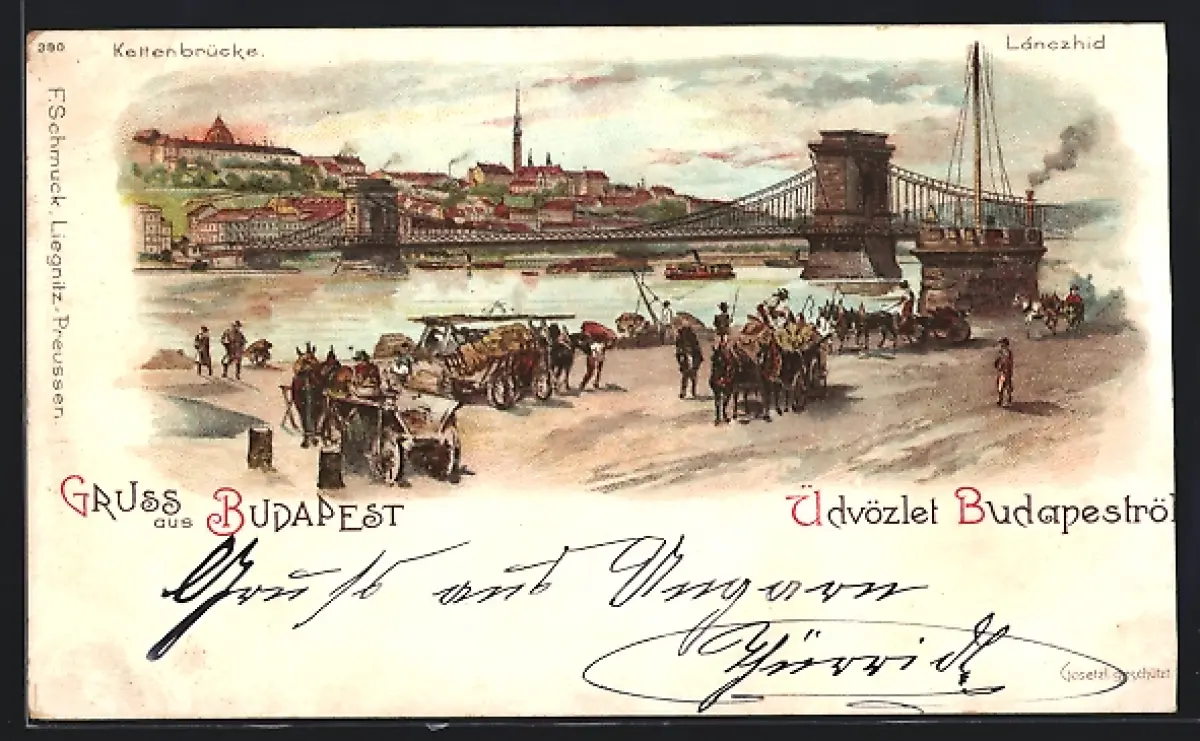 390
Kettenbrücke.
Lánczhid
F. Schmuck, Liegnitz-Preussen.
GRUSS aus BUDAPEST
Üdvözlet Budapestról
Gruß aus Ungarn
Gesetzl. geschützt